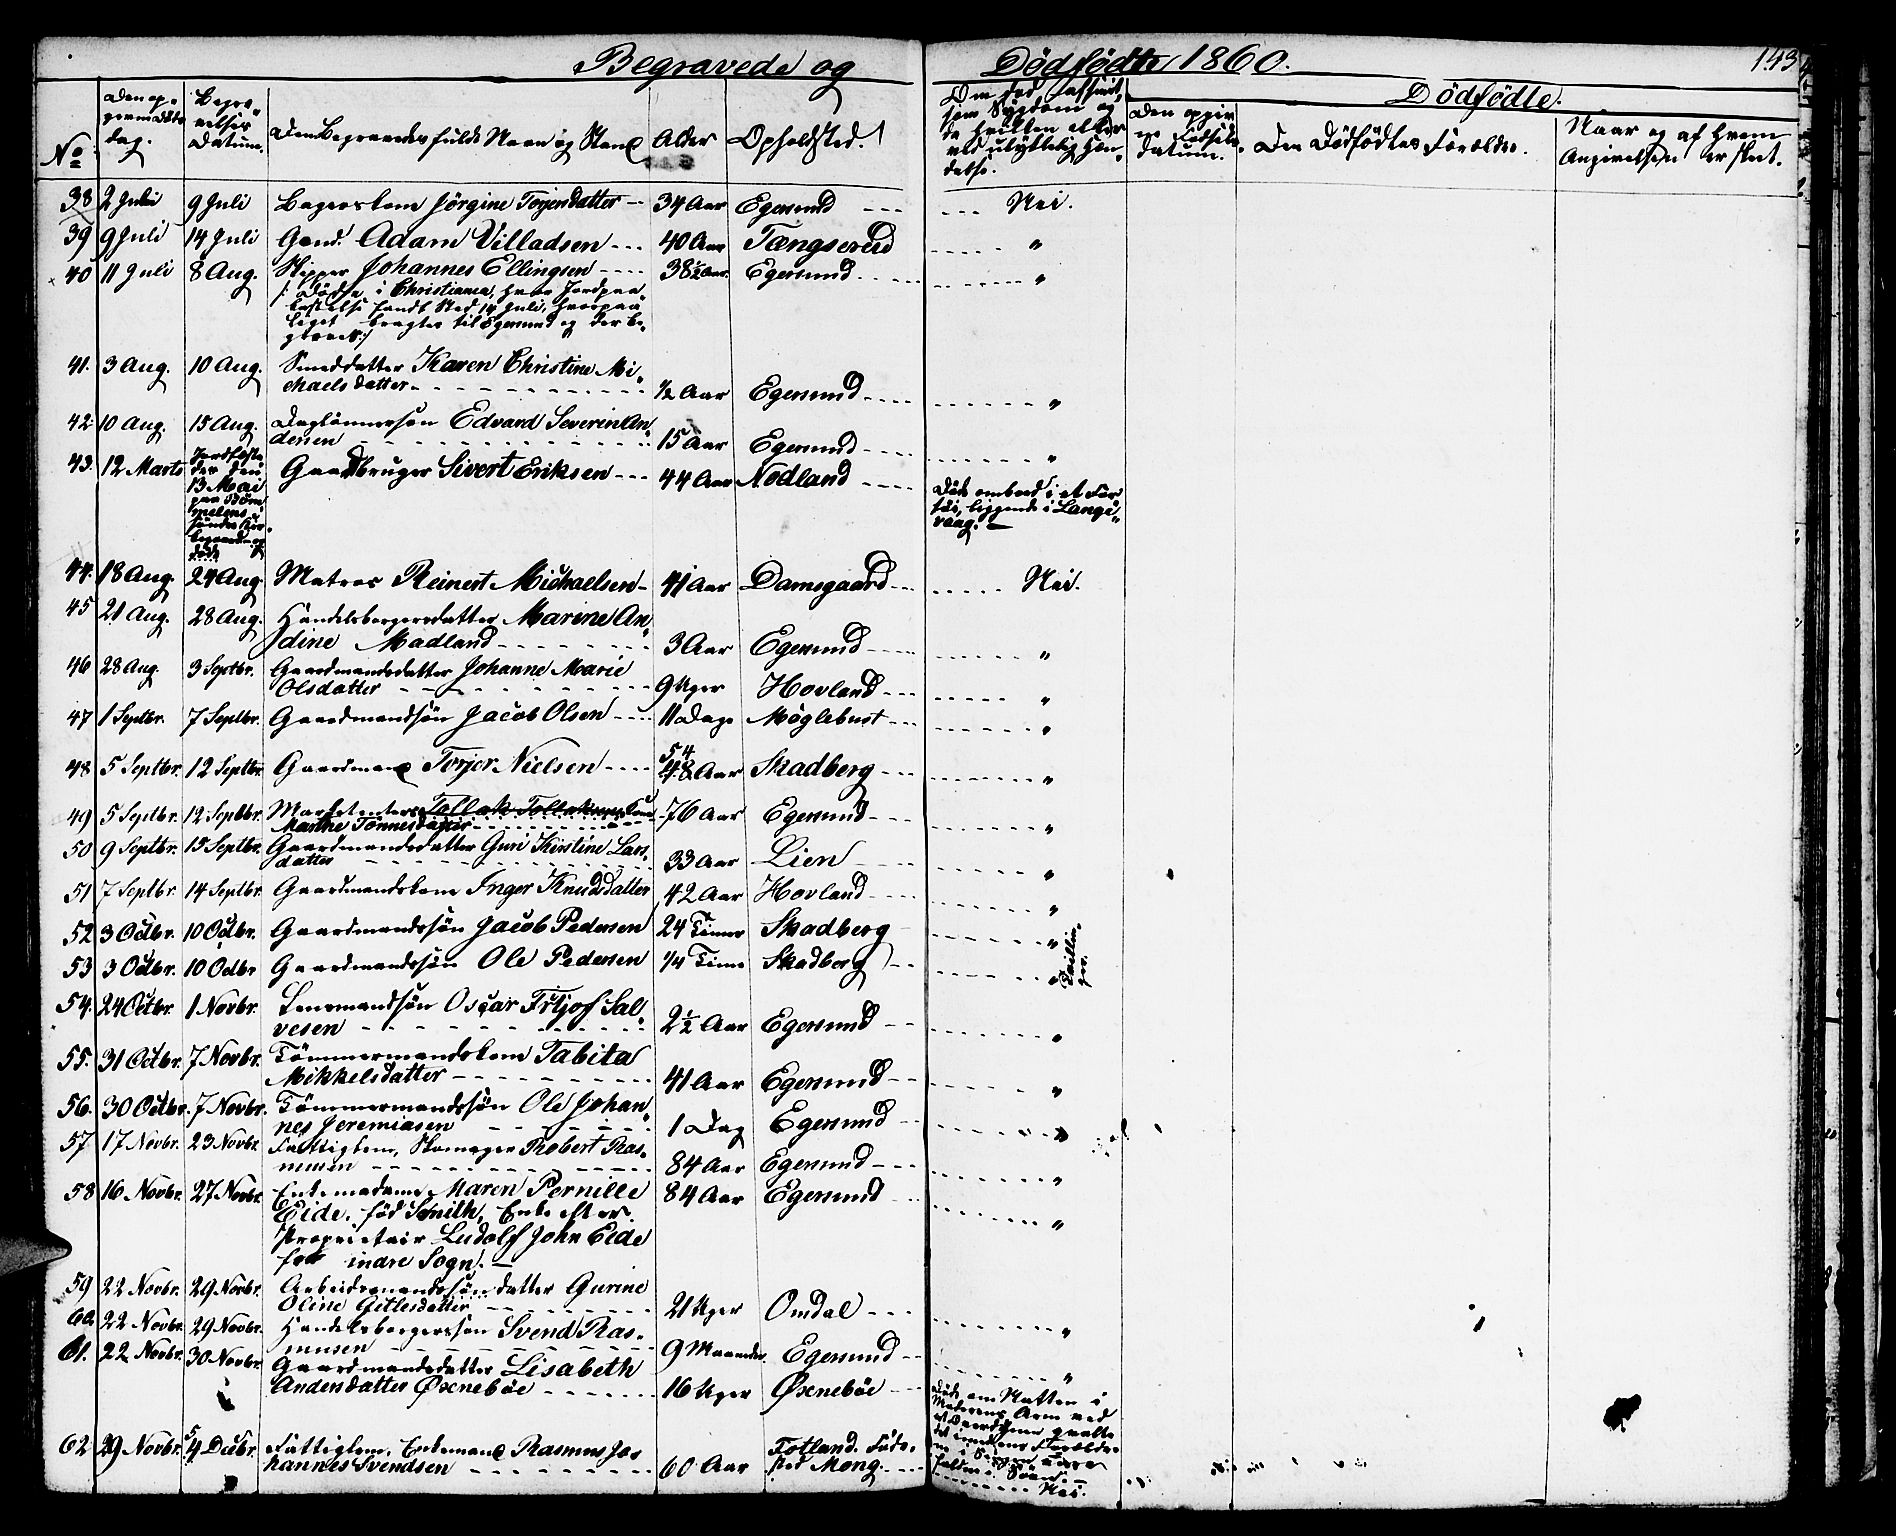 Begravede og Dødfødte 1860. 143
Dødfødte.
No. Den opgivne Døds dag. Begravelses Datum. Den Begravedes fulde Navn og Stand Alder Opholdsted.
Den Dødfødtes Forældre. Naar og af Hvem Angivelsen er skeet.
38 2 Juli 9 Juli Bagerskone Jörgine Torjersdatter 34 Aar Egersund Nei.
39 9 Juli 14 Juli Gaardm. Adam Villadsen 40 Aar Tængsereid "
40 11 Juli 8 Aug. Skipper Johannes Ellingsen 38½ Aar. Egersund "
/: Døde i Christiania, hvor Jordpaa
kastelse fandt Sted 14 Juli, hvorpaa
Liget bragtes til Egersund og der be„
gravet :/
41. 3 Aug. 10 Aug. Smeddatter Karen Christine Mi„
chaelsdatter ½ Aar Egersund "
42 10 Aug. 15 Aug. Daglönnersön Edvard Severin An„
dersen 15 Aar Egersund "
43. 12 Marts Jordfæste
des den
13 Mai
paa Böm„
melens
söndre Kir„
kegaard
Gaardbruger Sivert Eriksen 44 Aar Nodland
Döde ombord i et Far„
töi, liggende i Lange„
vaag.
44. 18 Aug. 24 Aug. Matros Reinert Michaelsen 41 Aar Damsgaard Nei.
45 21 Aug. 28 Aug. Handelsborgersdatter Marine An„
dine Madland 3 Aar Egersund "
46 28 Aug. 3 Septbr. Gaardmandsdatter Johanne Marie
Olsdatter 9 Uger Hovland "
47 1 Septbr. 7 Septbr. Gaardmandsön Jacob Olsen 11 Dage Möglebust "
48 5 Septbr. 12 Septbr. Gaardmand Torjer Nielsen 54 48 Aar Skadberg "
49 5 Septbr. 12 Septbr. Marketenter Tollak Tollaksens
Marthe Tönnesdatter 76 Aar Egersund "
50 9 Septbr. 15 Septbr. Gaardmandsdatter Guri Kirstine Lars„
datter 33 Aar Lien "
51 7 Septbr. 14 Septbr. Gaardmandskone Inger Knudsdatter 42 Aar Hovland "
52 3 Octbr. 10 Octbr. Gaardmandssön Jacob Pedersen 24 Timer Skadberg "
53 3 Octbr. 10 Octbr Gaardmandssön Ole Pedersen ¼ Time Skadberg "
Tvillin„
ger.
54. 24 Octbr. 1 Novbr. Lensmandsön Oscar Fritjof Sal„
vesen 2½ Aar Egersund "
55. 31 Octbr. 7 Novbr. Tömmermandskone Tabita
Mikkelsdatter 41 Aar Egersund "
56. 30 Octbr. 7 Novbr. Tömmermandssön Ole Johan„
nes Jeremiasen 1 Dag Egersund "
57 17 Novbr. 23 Novbr. Fattiglem, Skomager Robert Ras„
musen 84 Aar Egersund "
58 16 Novbr. 27 Novbr. Enkemadame Maren Pernille
Eide, född Smith, Enke efter
Proprietair Ludolf John Eide
fra indre Sogn. 84 Aar Egersund "
59 22 Novbr. 29 Novbr. Arbeidsmandssön datter Gurine
Oline Getlesdatter 21 Uger Omdal "
60. 22 Novbr. 29 Novbr. Handelsborgerssön Svend Ras„
musen 9 Maaneder Egersund "
61. 22 Novbr. 30 Novbr. Gaardmandsdatter Lisabeth
Andersdatter Øxneböe 16 Uger Øxneböe
Döde om Natten i
Moderens Arm ved
62 29 Novbr. 5 4 Decbr. Fattiglem, Enkemand Rasmus Jo„
hannes Svendsen 60 Aar Fotland. Föde„
sted Mong. Nei.